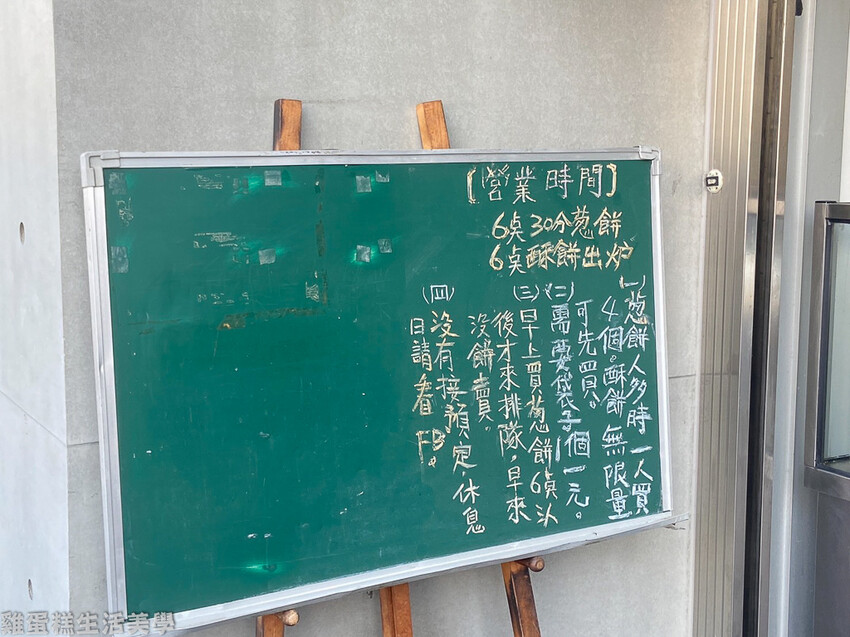 【營業時間】
6点30分葱餅
6点酥餅出炉
(一)葱餅人多時一人買
4個。酥餅無限量
可先買。
(二)需要袋子1個一元。
(三)早上買葱餅6点以
後才來排隊,早來
沒餅賣。
(四)沒有接預定,休息
日請看FB。
雞蛋糕生活美學